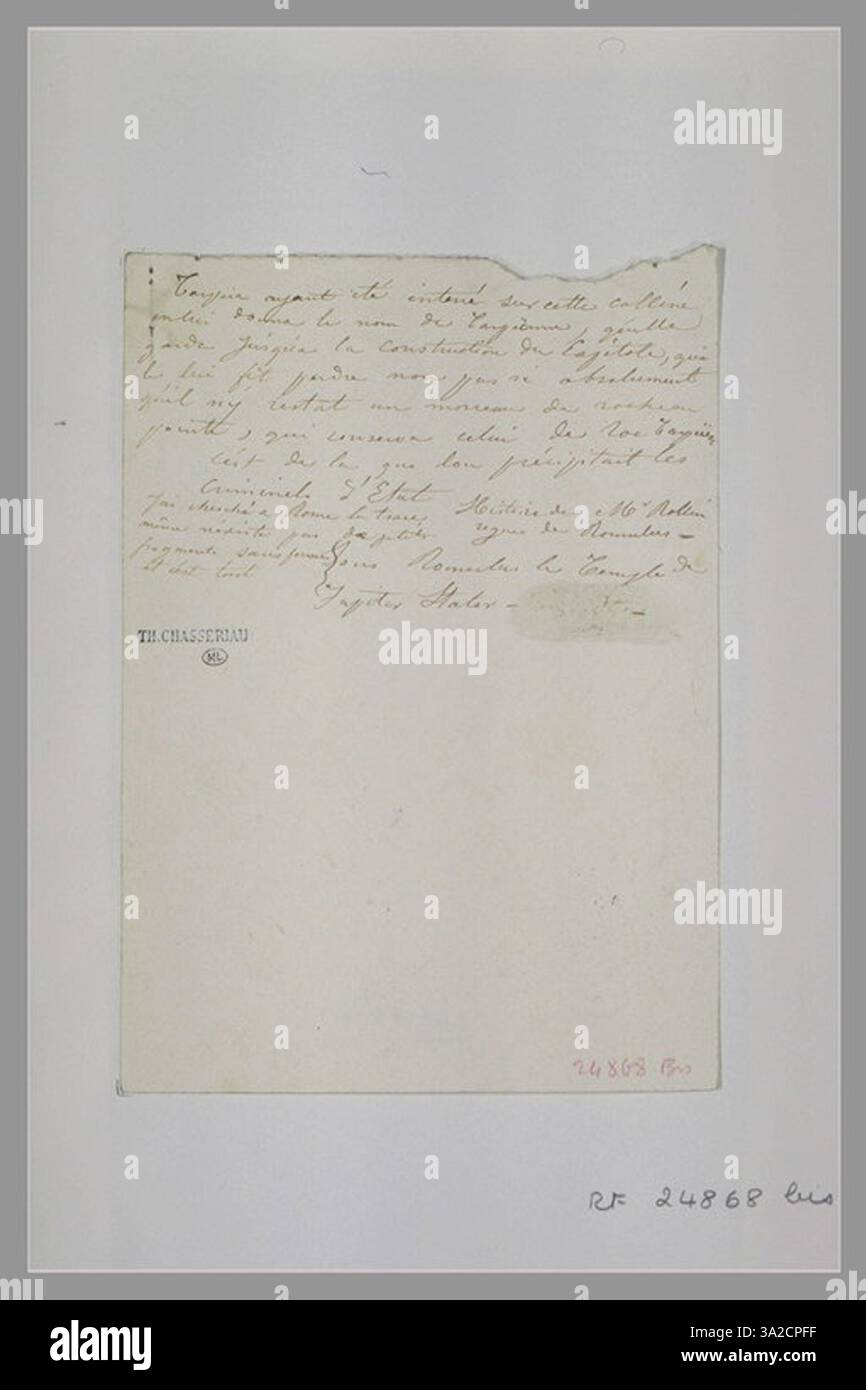 Tarpeia ayant été enterré sur cette colline
on lui donna le nom de Tarpéienne, qu'elle
garda jusqu'à la construction du Capitole, qui
le lui fit perdre non pas si absolument
qu'il n'y restat un morceau de rocheau
pointu, qui conserva celui de Roc Tarpéien
c'est de la que l'on précipitait les
Criminels d'Etat
j'ai cherché a Rome la trace,
même n'éxiste pas de petits
fragments sans forme
et c'est tout
Histoire de Mr Rollin
regne de Romulus –
Sous Romulus le Temple de
Jupiter Stator –
TH. CHASSERIAU
ML
24868 Bis
RF 24868 bis
alamy
Image ID: 3A2CPFF
www.alamy.com